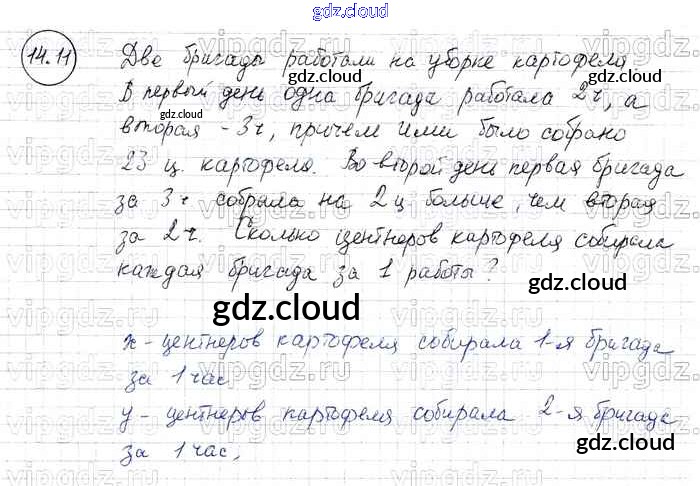 gdz.cloud
14.11 Две бригады работали на уборке картофеля
gdz.cloud
В первый день одна бригада работала 2ч, а
gdz.cloud
вторая - 3ч, причем ими было собрано
23 ц. картофеля. Во второй день первая бригада
за 3ч собрала на 2ц больше, чем вторая
за 2ч. Сколько центнеров картофеля собирала
каждая бригада за 1 работы?
gdz.cloud
gdz.cloud
x - центнеров картофеля собирала 1-я бригада
за 1 час
y - центнеров картофеля собирала 2-я бригада
gdz.cloud
за 1 час,